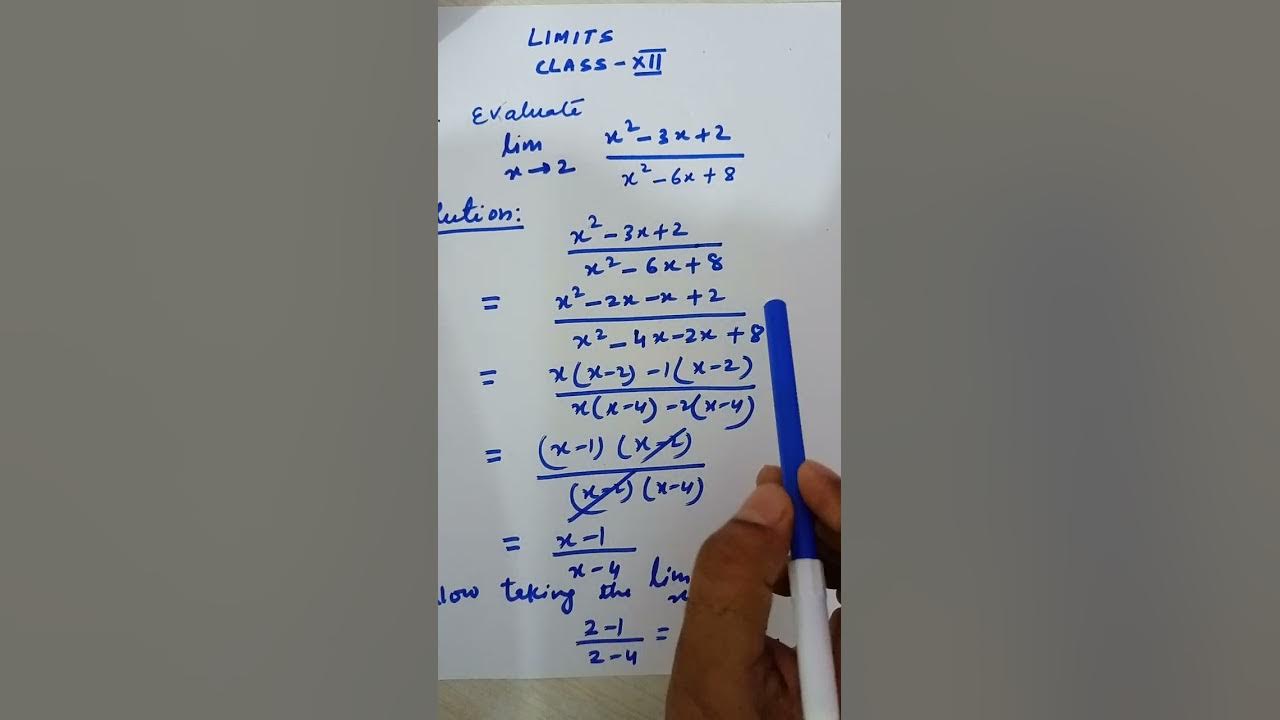 LIMITS
CLASS - XII
Evaluate
lim x→2 (x² - 3x + 2)/(x² - 6x + 8)
lution:
(x² - 3x + 2)/(x² - 6x + 8)
= (x² - 2x - x + 2)/(x² - 4x - 2x + 8)
= (x(x-2) - 1(x-2))/(x(x-4) - 2(x-4))
= ((x-1)(x-2))/((x-2)(x-4))
= (x-1)/(x-4)
Now taking the lim x
(2-1)/(2-4) =